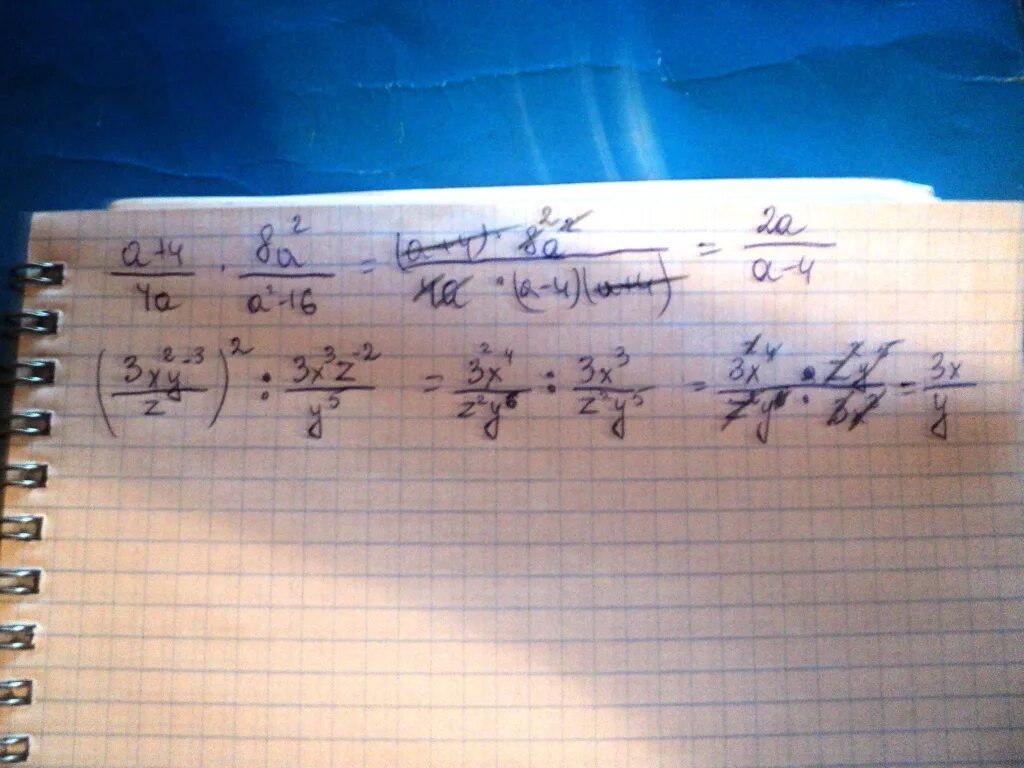 (a+4)/(4a) · (8a²)/(a²-16) = ((a+4) · 8a²)/(4a · (a-4)(a+4)) = (2a)/(a-4)
((3x²y⁻³)/z)² : (3x³z⁻²)/(y⁵) = (3²x⁴)/(z²y⁶) : (3x³)/(z²y⁵) = (3²x⁴)/(z²y⁶) · (z²y⁵)/(3x³) = (3x)/y